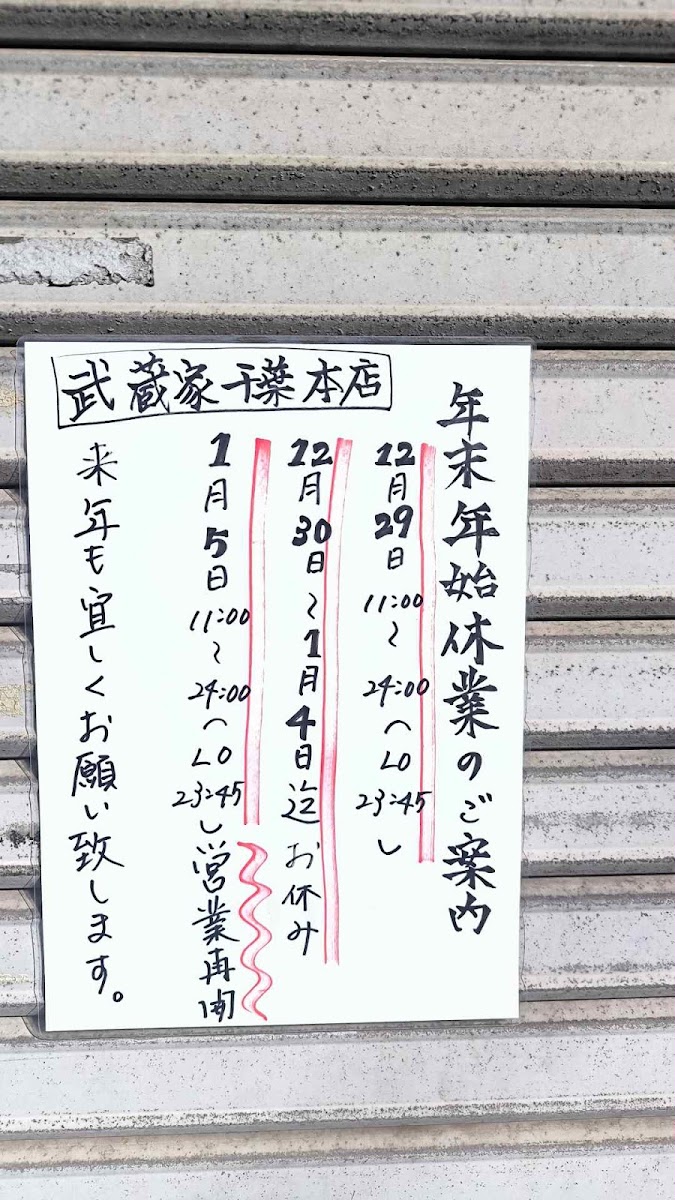 年末年始休業のご案内
12月29日 11:00～24:00(LO 23:45)
12月30日～1月4日迄お休み
1月5日 11:00～24:00(LO 23:45)営業再開
武蔵家千葉本店
来年も宜しくお願い致します。